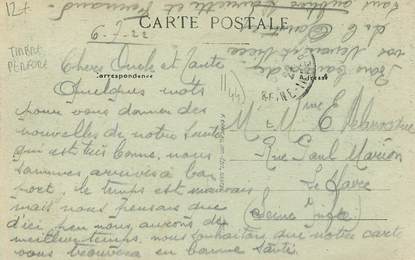 12f
TIMBRE
PERFORÉ
CARTE POSTALE
6-7-22
Correspondance
Adresse
Chers Oncle et Tante
Quelques mots
pour vous donner des
nouvelles de notre santé
qui est très bonne, nous
sommes arrivés à bon
port. le temps est mauvais
mais nous pensons que
d'ici peu nous aurons de
meilleur temps. nous souhaitons que notre carte
vous trouvera en bonne santé.
44
M. Mme E.
Rue Paul Marion
Le Havre
(Seine Infre)
vos Neveu et Nièce